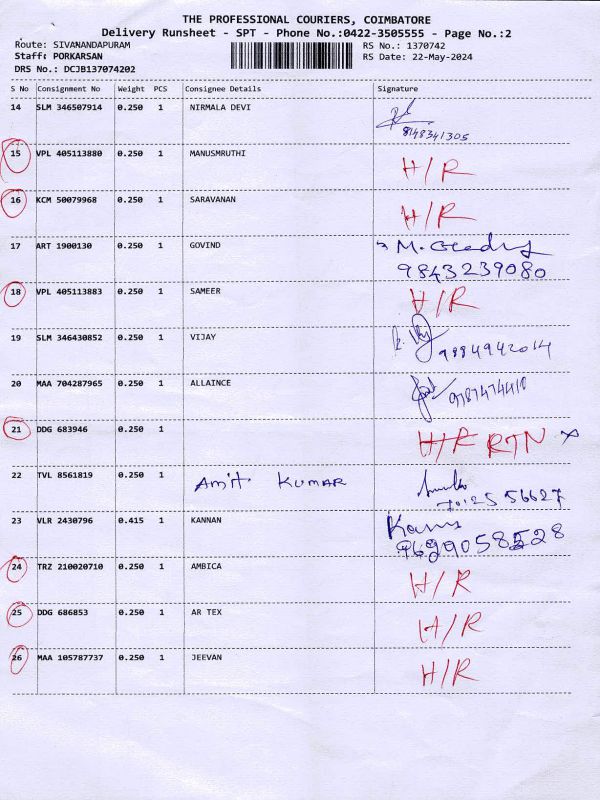 THE PROFESSIONAL COURIERS, COIMBATORE
Delivery Runsheet - SPT - Phone No.:0422-3505555 - Page No.:2
Route: SIVANANDAPURAM RS No.: 1370742
Staff: PORKARSAN RS Date: 22-May-2024
DRS No.: DCJB137074202
S No Consignment No Weight PCS Consignee Details Signature
14 SLM 346507914 0.250 1 NIRMALA DEVI
8148341305
15 VPL 405113880 0.250 1 MANUSMRUTHI H/R
16 KCM 50079968 0.250 1 SARAVANAN H/R
17 ART 1900130 0.250 1 GOVIND
9843239080
18 VPL 405113883 0.250 1 SAMEER H/R
19 SLM 346430852 0.250 1 VIJAY 9884942014
20 MAA 704287965 0.250 1 ALLAINCE
21 DDG 683946 0.250 1 H/R RTN
22 TVL 8561819 0.250 1 Amit KUMAR
23 VLR 2430796 0.415 1 KANNAN
24 TRZ 210020710 0.250 1 AMBICA H/R
25 DDG 686853 0.250 1 AR TEX H/R
26 MAA 105787737 0.250 1 JEEVAN H/R